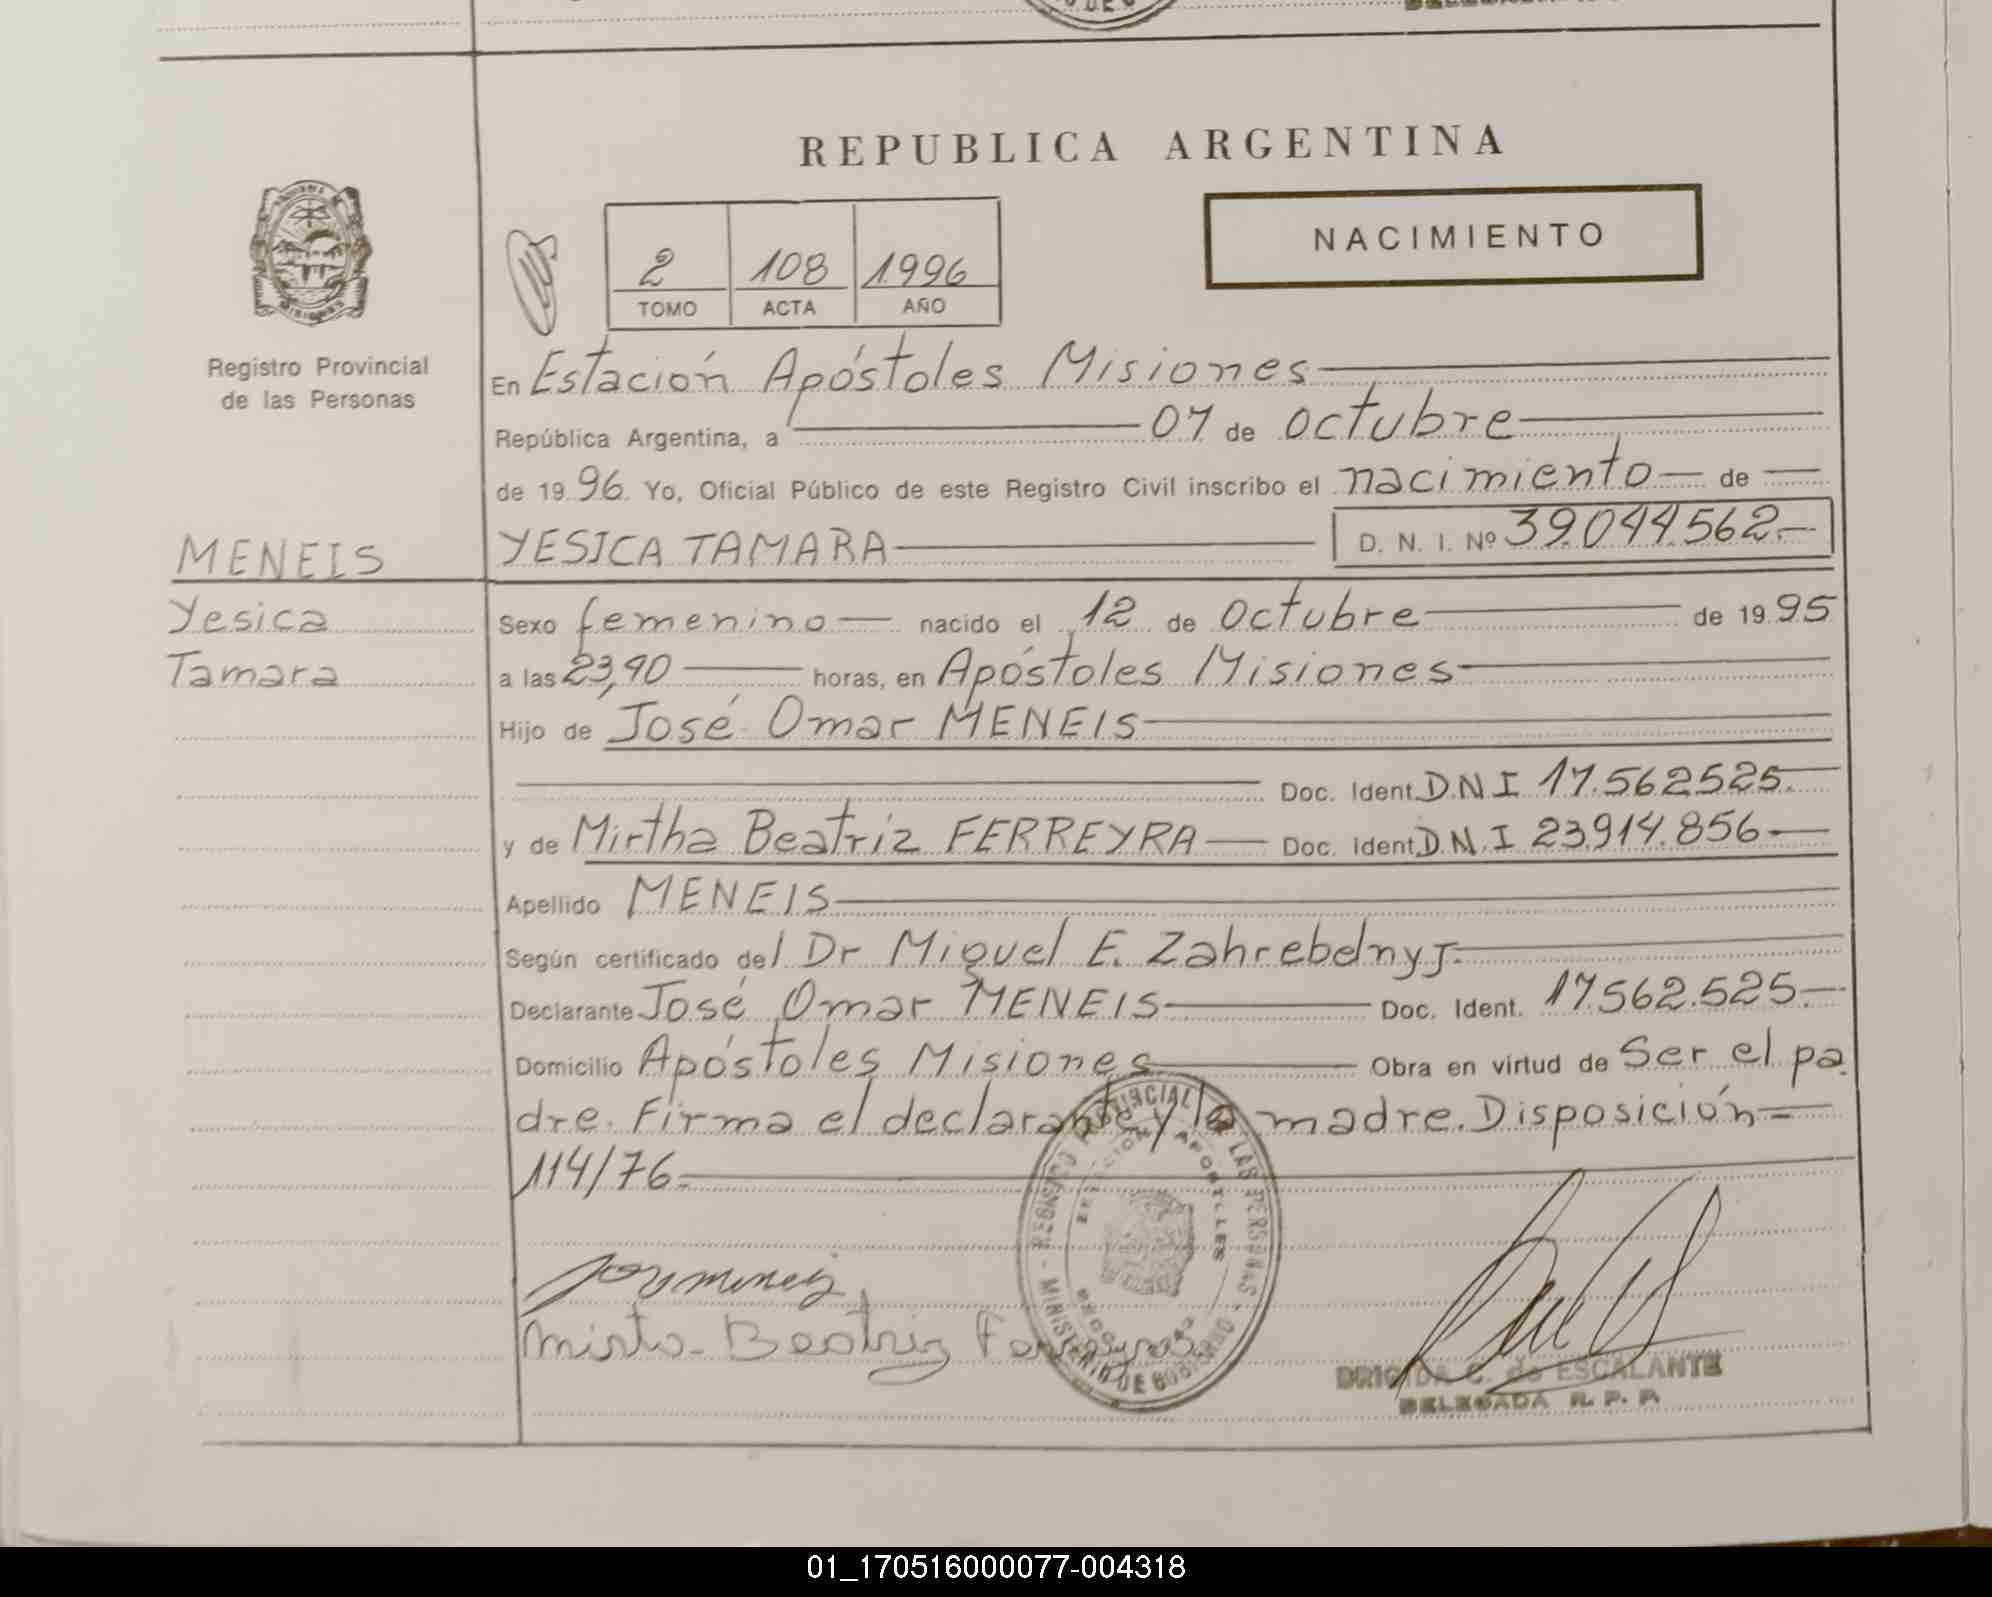 REPUBLICA ARGENTINA
NACIMIENTO
2 108 1996
TOMO ACTA AÑO
MISIONES
Registro Provincial
de las Personas
En Estación Apóstoles Misiones
República Argentina, a 07 de octubre
de 1996 Yo, Oficial Público de este Registro Civil inscribo el nacimiento de
MENEIS
Yesica
Tamara
YESICA TAMARA D. N. I. Nº 39.044.562.-
Sexo femenino nacido el 12 de Octubre de 1995
a las 23,40 horas, en Apóstoles Misiones
Hijo de José Omar MENEIS
Doc. Ident. D.N.I 17.562525.
y de Mirtha Beatriz FERREYRA Doc. Ident. D.N.I 23.914.856
Apellido MENEIS
Según certificado del Dr Miguel E. Zahrebelnyj.
Declarante José Omar MENEIS Doc. Ident. 17.562.525.
Domicilio Apóstoles Misiones Obra en virtud de Ser el pa
dre. Firma el declarante y la madre. Disposición
114/76.
REGISTRO PROVINCIAL DE LAS PERSONAS - MINISTERIO DE GOBIERNO
Beatriz Ferreyra
BRIGIDA C. de ESCALANTE
DELEGADA R. P. P.
01_170516000077-004318